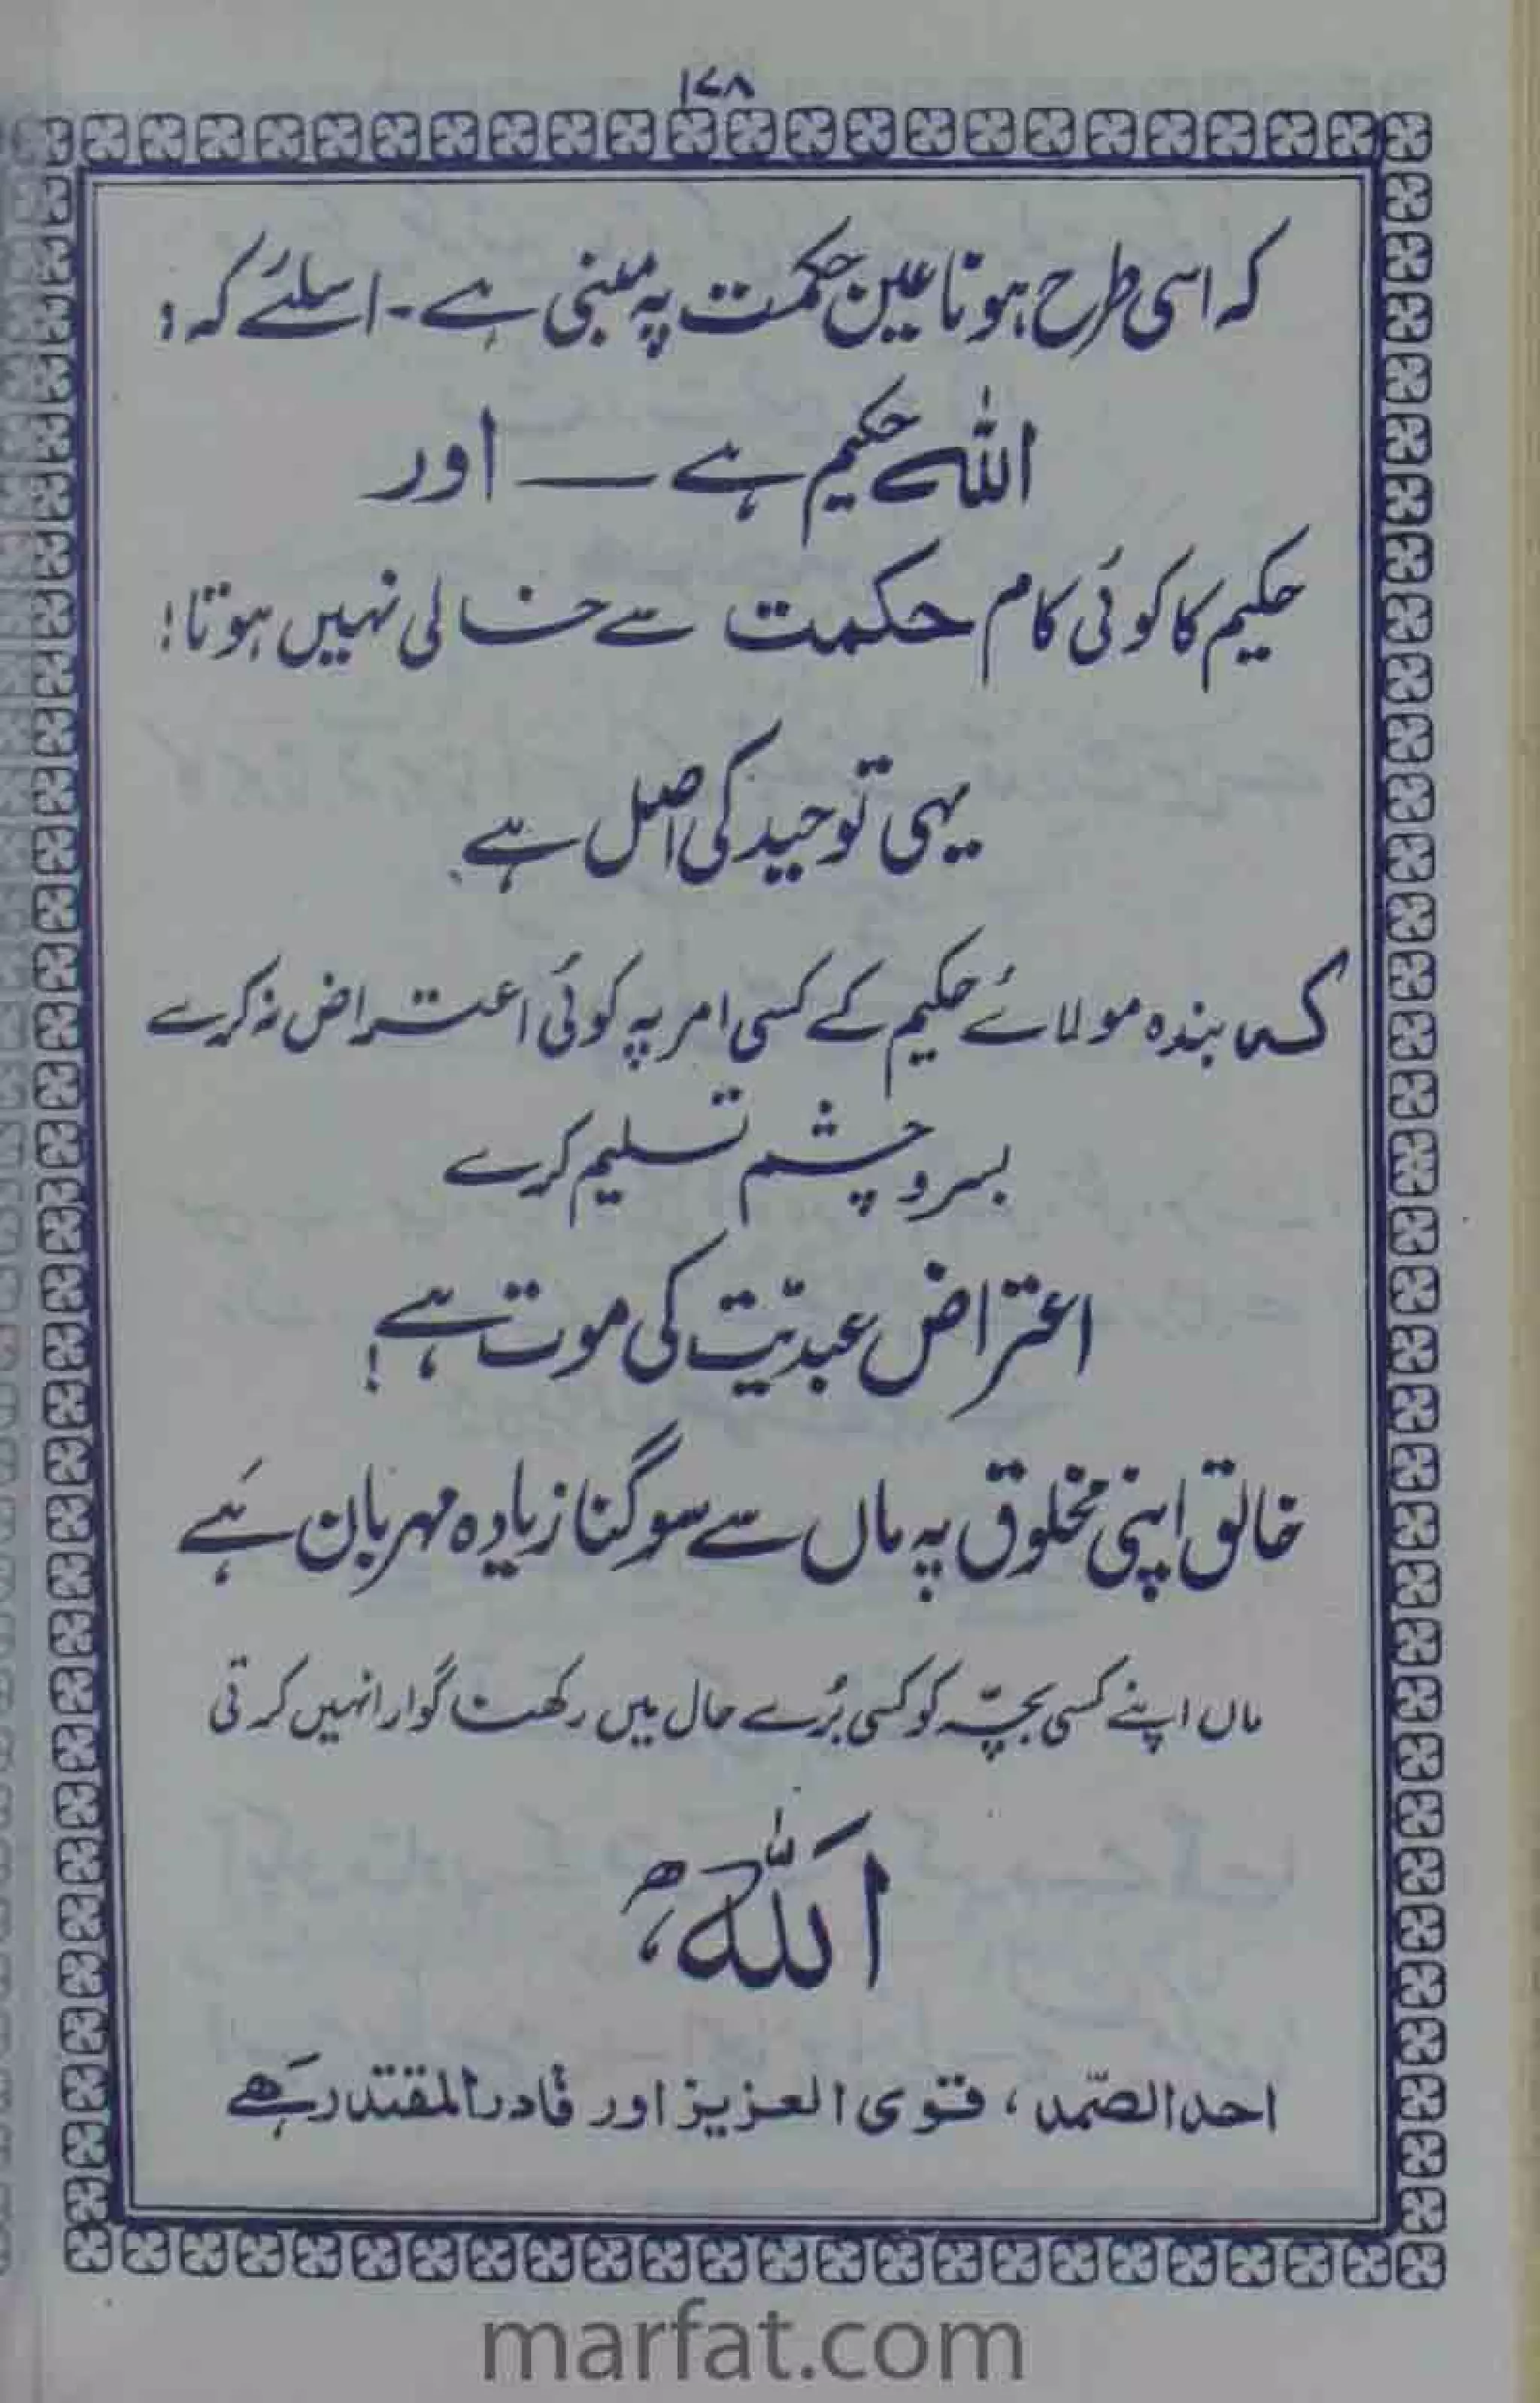 ۱۷۸
کہ اسی طرح ہونا عین حکمت پہ مبنی ہے ۔ اسلئے کہ :
اللہ حکیم ہے — اور
حکیم کا کوئی کام حکمت سے خالی نہیں ہوتا !
یہی توحید کی اصل ہے
کہ بندہ مولائے حکیم کے کسی امر پہ کوئی اعتراض نہ کرے
بسر و چشم تسلیم کرے
اعتراض عبدیّت کی موت ہے !
خالق اپنی مخلوق پہ ماں سے سو گنا زیادہ مہربان ہَے
ماں اپنے کسی بچّہ کو کسی بُرے حال میں رکھنا گوارا نہیں کرتی
اَللّٰہُ
احد الصّمد ، قوی العزیز اور قادر المقتدر ہَے
marfat.com